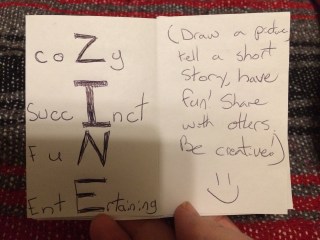 coZy
SuccInct
FuN
EntErtaining
(Draw a picture,
tell a short
story, have
fun! Share
with others.
Be creative!)